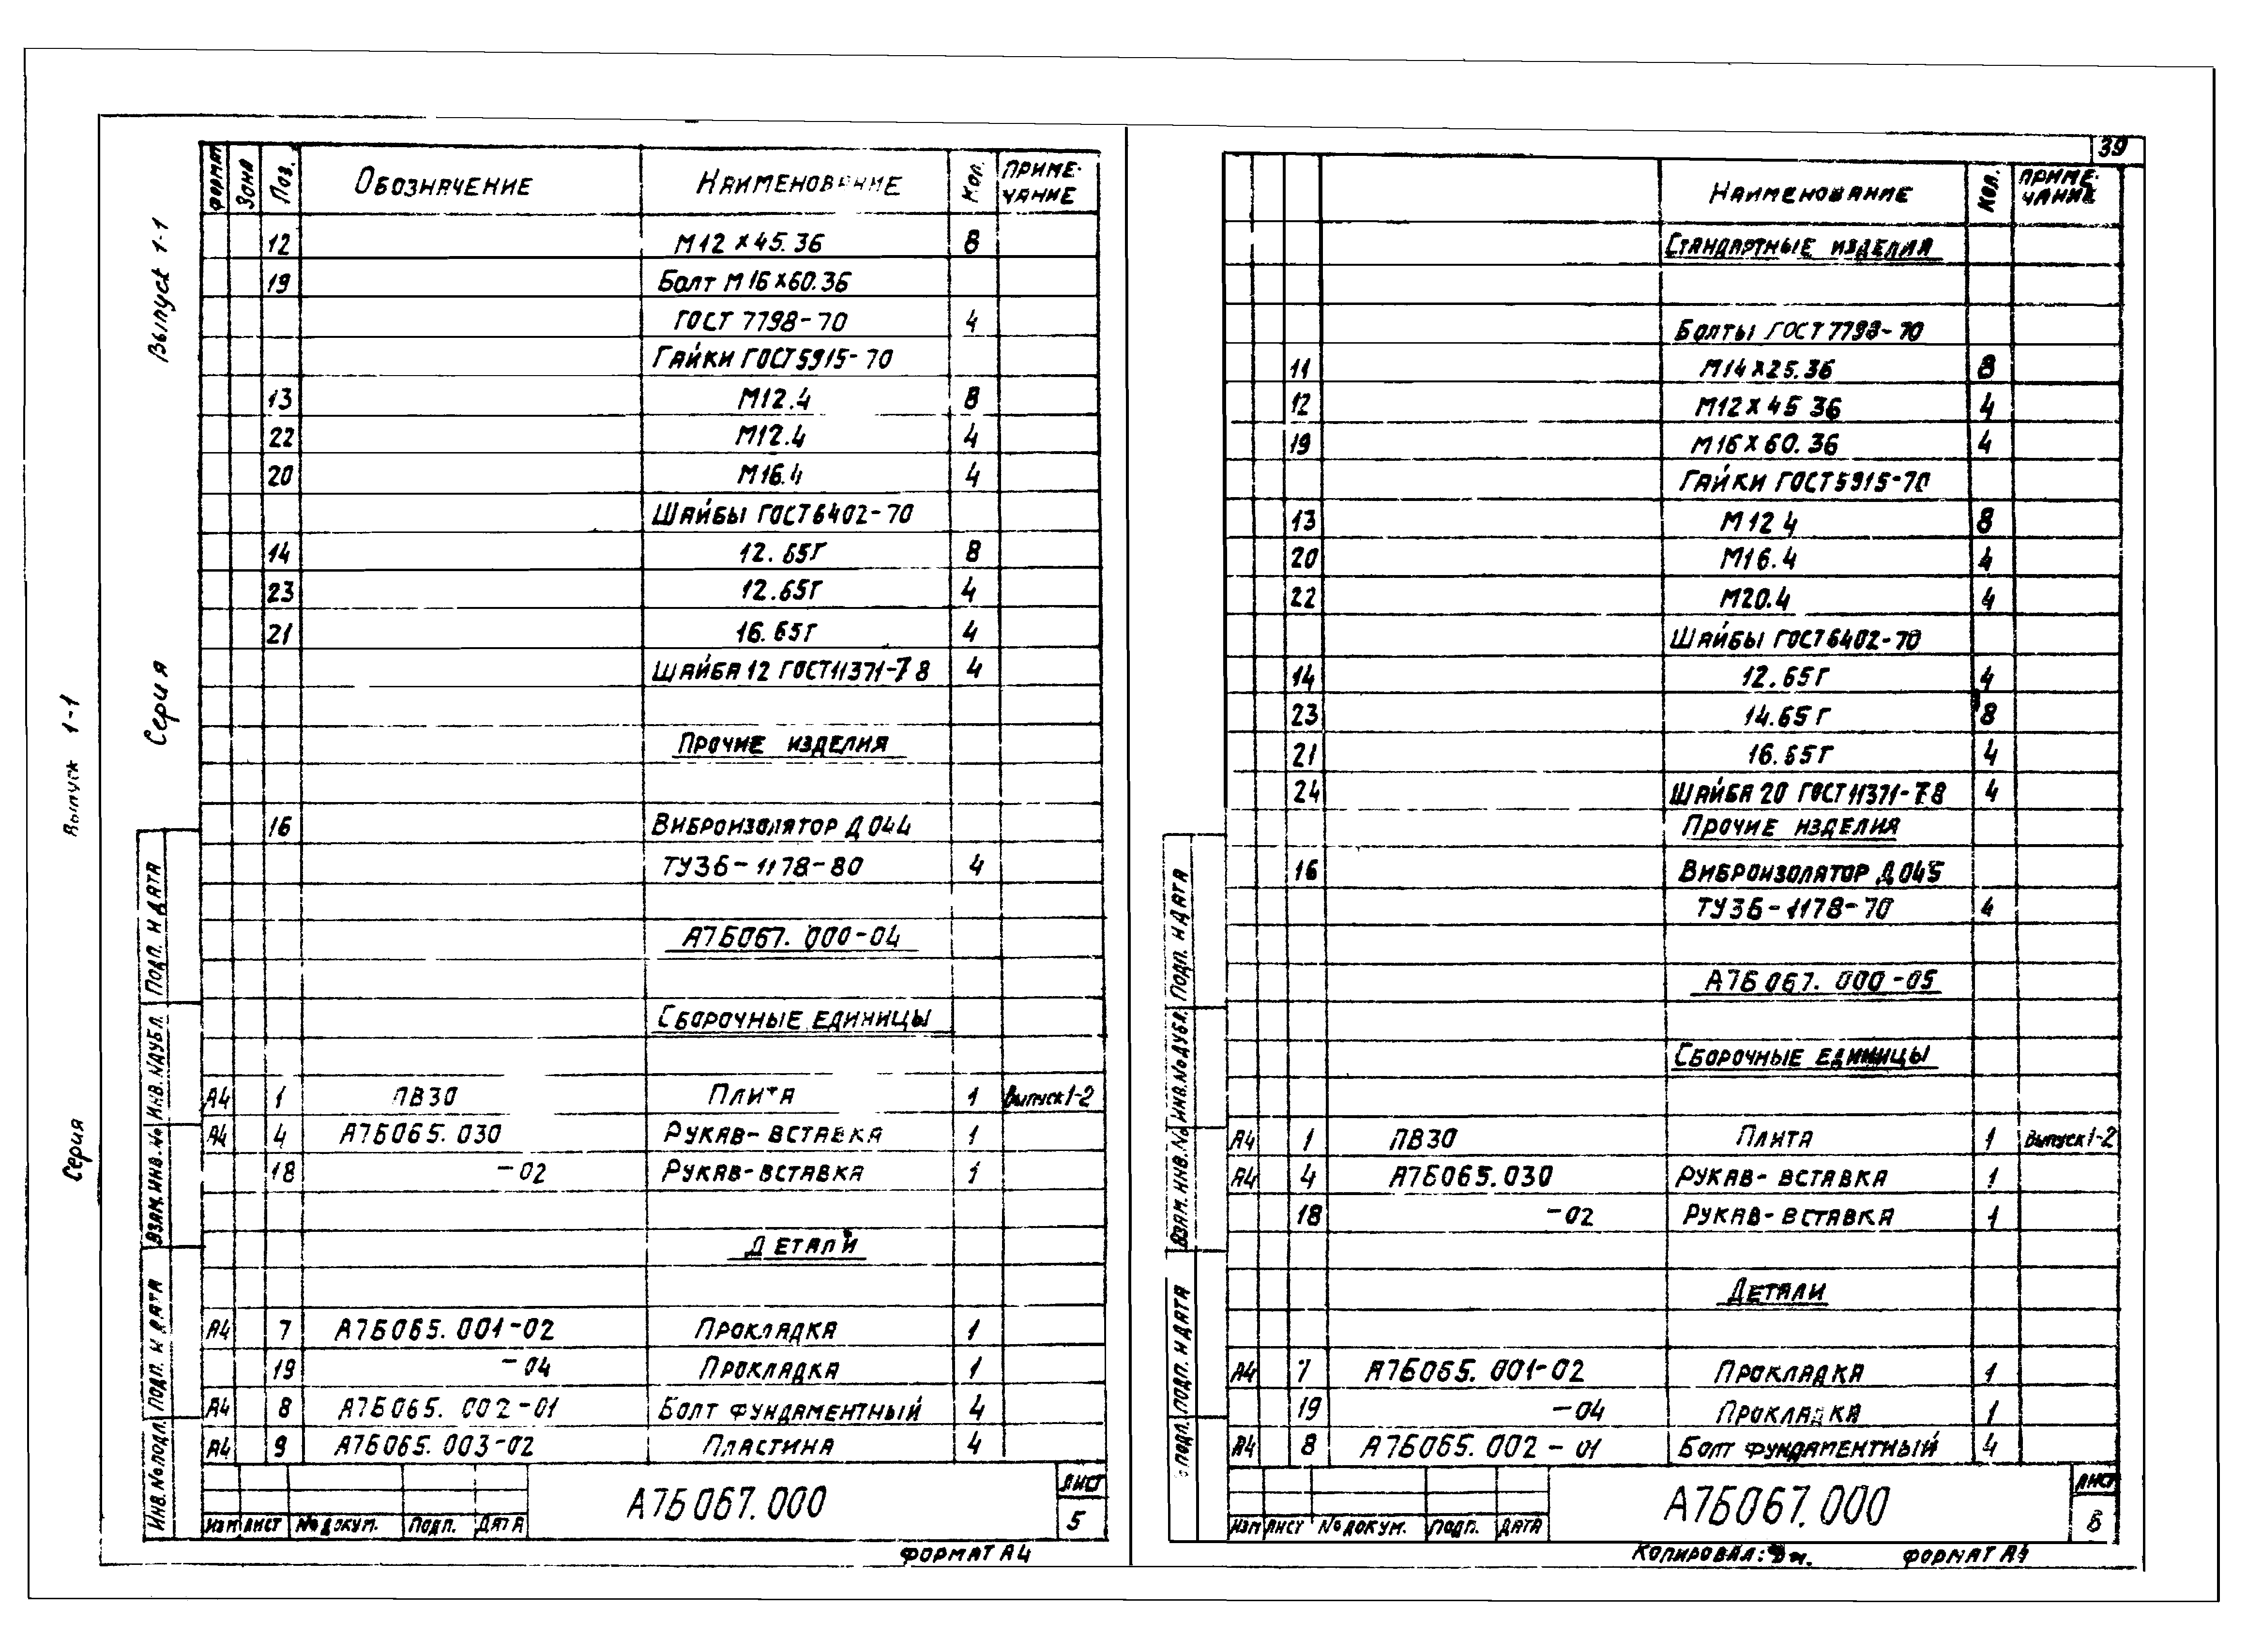 39
Выпуск 1-1
Серия
Выпуск 1-1
Серия
ФОРМАТ Зона Поз. Обозначение Наименование Кол. Приме-
чание
12 М12×45.36 8
19 Болт М16×60.36
ГОСТ 7798-70 4
Гайки ГОСТ 5915-70
13 М12.4 8
22 М12.4 4
20 М16.4 4
Шайбы ГОСТ 6402-70
14 12.65Г 8
23 12.65Г 4
21 16.65Г 4
Шайба 12 ГОСТ 11371-78 4
Прочие изделия
16 Виброизолятор Д044
ТУ36-1178-80 4
А7Б067.000-04
Сборочные единицы
А4 1 ПВ30 Плита 1 Выпуск 1-2
А4 4 А7Б065.030 Рукав-вставка 1
18 -02 Рукав-вставка 1
Детали
А4 7 А7Б065.001-02 Прокладка 1
19 -04 Прокладка 1
А4 8 А7Б065.002-01 Болт фундаментный 4
А4 9 А7Б065.003-02 Пластина 4
Инв.№подл. Подп. и дата Взам.инв.№ Инв.№дубл. Подп. и дата
Изм Лист №докум. Подп. Дата
А7Б067.000
Лист
5
Формат А4
Наименование Кол. Приме-
чание
Стандартные изделия
Болты ГОСТ 7798-70
11 М14×25.36 8
12 М12×45 36 4
19 М16×60.36 4
Гайки ГОСТ 5915-70
13 М12 4 8
20 М16.4 4
22 М20.4 4
Шайбы ГОСТ 6402-70
14 12.65Г 4
23 14.65Г 8
21 16.65Г 4
24 Шайба 20 ГОСТ 11371-78 4
Прочие изделия
16 Виброизолятор Д045
ТУ36-1178-70 4
А7Б067.000-05
Сборочные единицы
А4 1 ПВ30 Плита 1 Выпуск 1-2
А4 4 А7Б065.030 Рукав-вставка 1
18 -02 Рукав-вставка 1
Детали
А4 7 А7Б065.001-02 Прокладка 1
19 -04 Прокладка 1
А4 8 А7Б065.002-01 Болт фундаментный 4
подл. Подп. и дата Взам.инв.№ Инв.№дубл. Подп. и дата
Изм Лист №докум. Подп. Дата
А7Б067.000
Лист
Копировал:
Формат А4